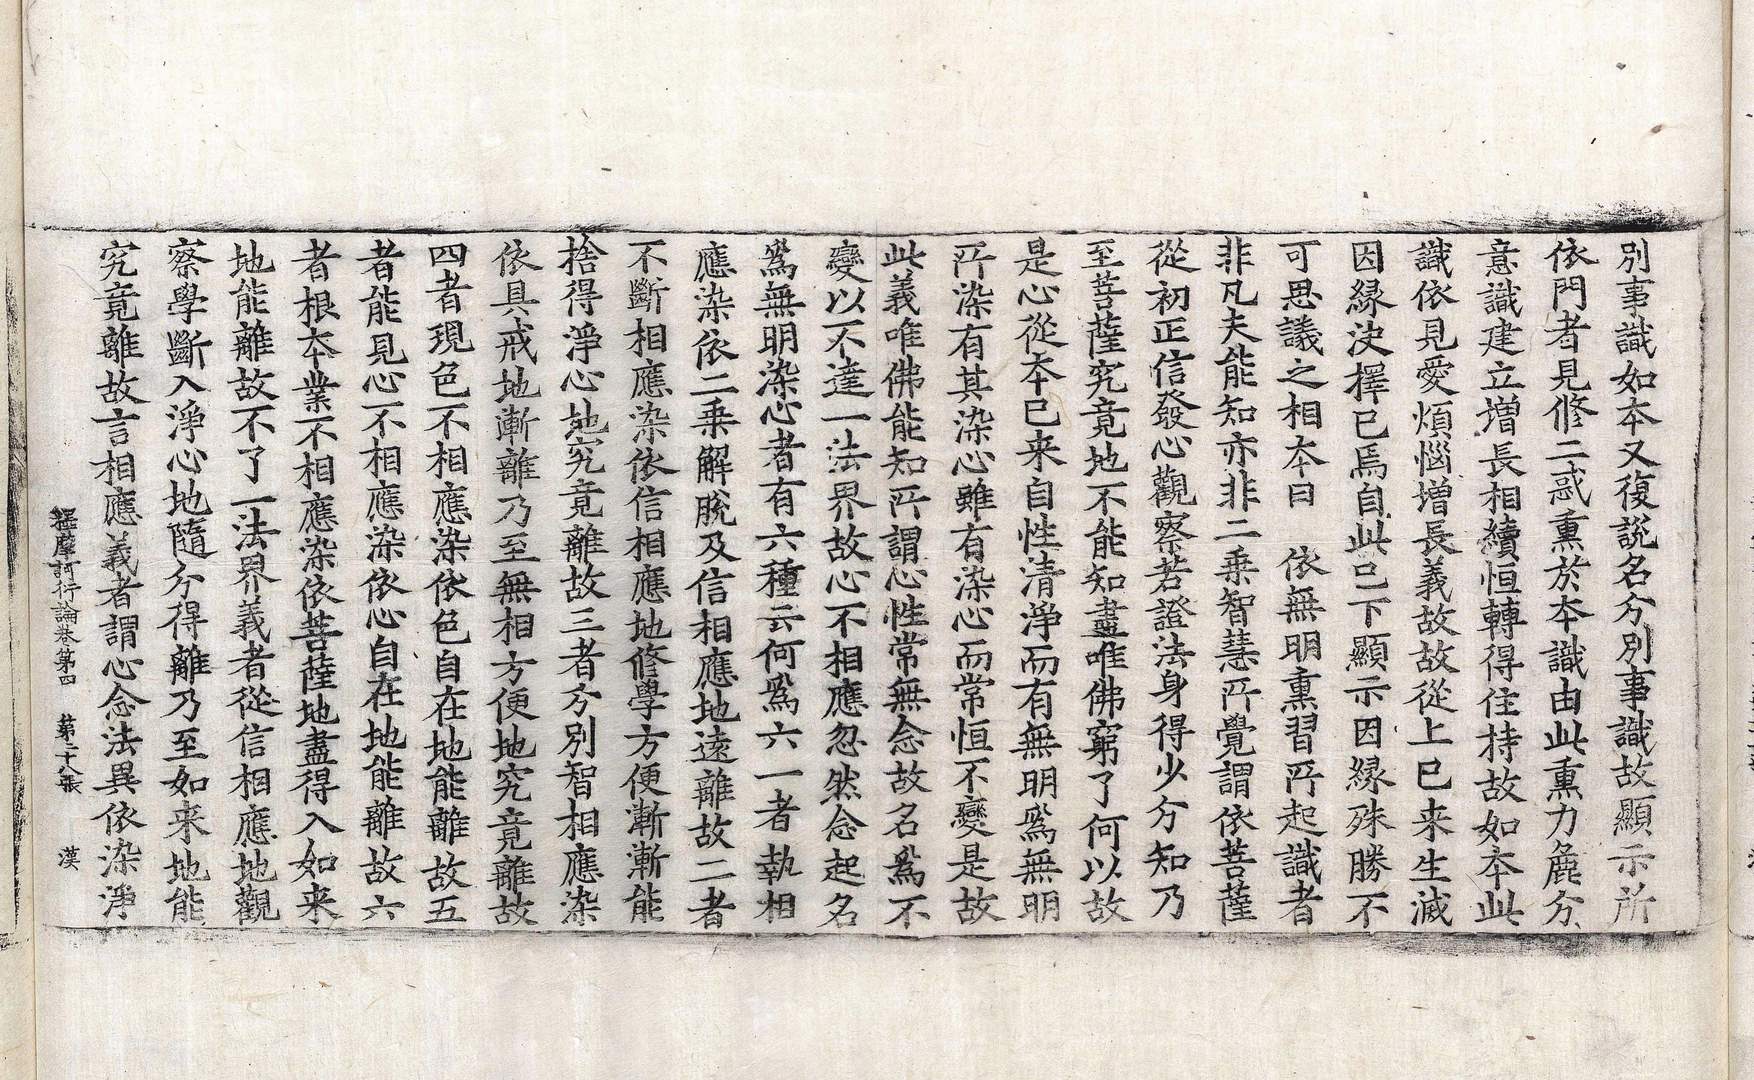 別事識如本又復說名分別事識故顯示所
依門者見修二惑熏於本識由此熏力麁分
意識建立增長相續恒轉得住持故如本此
識依見愛煩惱增長義故故從上已来生滅
因緣決擇已焉自此已下顯示因緣殊勝不
可思議之相本曰　依無明熏習所起識者
非凡夫能知亦非二乗智慧所覺謂依菩薩
從初正信發心觀察若證法身得少分知乃
至菩薩究竟地不能知盡唯佛窮了何以故
是心從本已来自性清淨而有無明爲無明
所染有其染心雖有染心而常恒不變是故
此義唯佛能知所謂心性常無念故名爲不
變以不達一法界故心不相應忽然念起名
爲無明染心者有六種云何爲六一者執相
應染依二乗解脫及信相應地遠離故二者
不斷相應染依信相應地修學方便漸漸能
捨得淨心地究竟離故三者分別智相應染
依具戒地漸離乃至無相方便地究竟離故
四者現色不相應染依色自在地能離故五
者能見心不相應染依心自在地能離故六
者根本業不相應染依菩薩地盡得入如来
地能離故不了一法界義者從信相應地觀
察學斷入淨心地隨分得離乃至如来地能
究竟離故言相應義者謂心念法異依染淨
釋摩訶衍論卷第四　第二十八張　漢